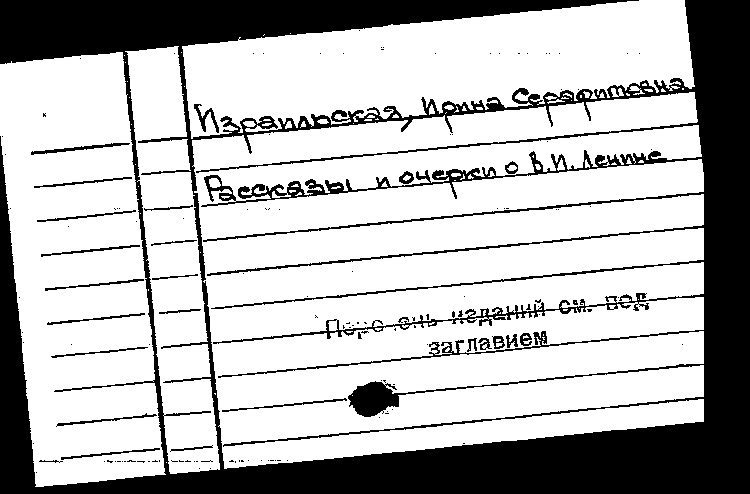 Израильская, Ирина Серафимовна.
Рассказы и очерки о В.И. Ленине
Перечень изданий см. под
заглавием